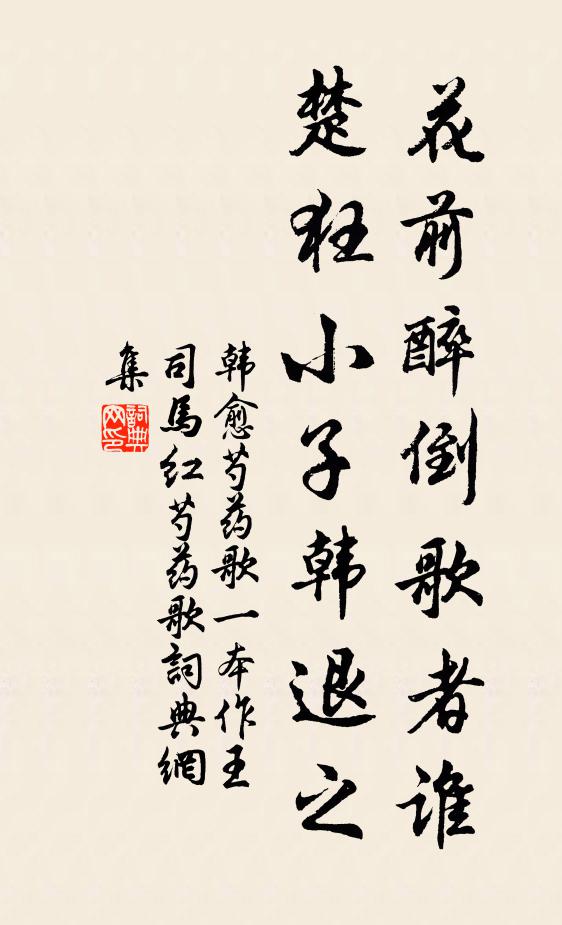 花前醉倒歌者谁
楚狂小子韩退之
韩愈芍药歌一本作王
司馬红芍药歌詞典網
集
詞典
网印